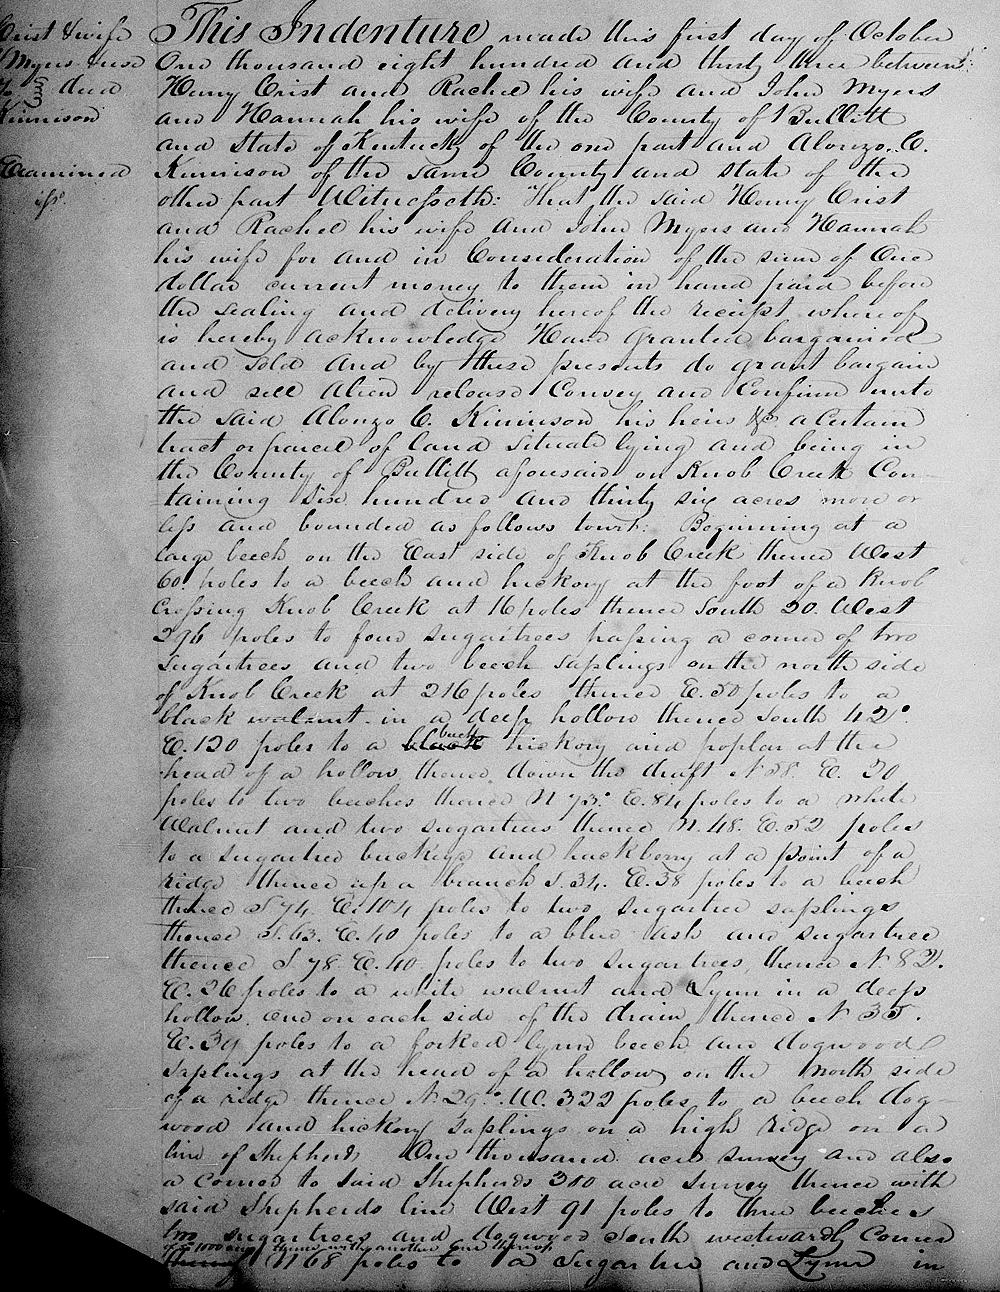 Crist & wife
Myers & wife
To } deed
Kinnison
Examined
This Indenture made this first day of October
One thousand eight hundred and thirty three between
Henry Crist and Rachel his wife and John Myers
and Hannah his wife of the County of Bullitt
and State of Kentucky of the one part and Alonzo. C.
Kinnison of the same County and state of the
other part Witnesseth: That the said Henry Crist
and Rachel his wife and John Myers and Hannah
his wife for and in Consideration of the sum of One
dollar current money to them in hand paid before
the sealing and delivery hereof the receipt whereof
is hereby acknowledge Have granted bargained
and sold and by these presents do grant bargain
and sell Alien release Convey and Confirm unto
the said Alonzo C. Kinnison his heirs &c a certain
tract or parcel of land situate lying and being in
the County of Bullitt aforesaid on Knob Creek Con-
taining Six hundred and thirty six acres more or
less and bounded as follows towit: Beginning at a
large beech on the East side of Knob Creek thence West
60 poles to a beech and hickory at the foot of a Knob
Crossing Knob Creek at 16 poles thence South 20. West
276 poles to four sugartrees passing a corner of two
sugartrees and two beech saplings on the north side
of Knob Creek at 216 poles thence E. 50 poles to a
black walnut in a deep hollow thence South 42°.
E. 120 poles to a black beech hickory and poplar at the
head of a hollow thence down the draft N 58. E. 20
poles to two beeches thence N 73.° E. 84 poles to a white
Walnut and two sugartrees thence N. 48. E. 52 poles
to a sugartree buckeye and hackberry at a point of a
ridge thence up a branch S. 34. E. 38 poles to a beech
thence S 74. E. 104 poles to two sugartree saplings
thence S. 63. E. 40 poles to a blue ash and sugartree
thence S. 78. E. 40 poles to two sugartrees, thence N. 82.
E. 26 poles to a white walnut and Lynn in a deep
hollow. and on each side of the drain thence N 35.
E. 34 poles to a forked lynn beech and dogwood
saplings at the head of a hollow on the North side
of a ridge thence N. 29.° W. 322 poles to a beech dog-
wood and hickory saplings on a high ridge on a
line of Shepherds One thousand acre survey and also
a corner to said Shepherds 300 acre survey thence with
said Shepherds line West 91 poles to three beeches
two sugartrees and dogwood South westwardly Corner
of sd 1000 acres thence with another line thereof
thence N 68 poles to a Sugartree and Lynn in